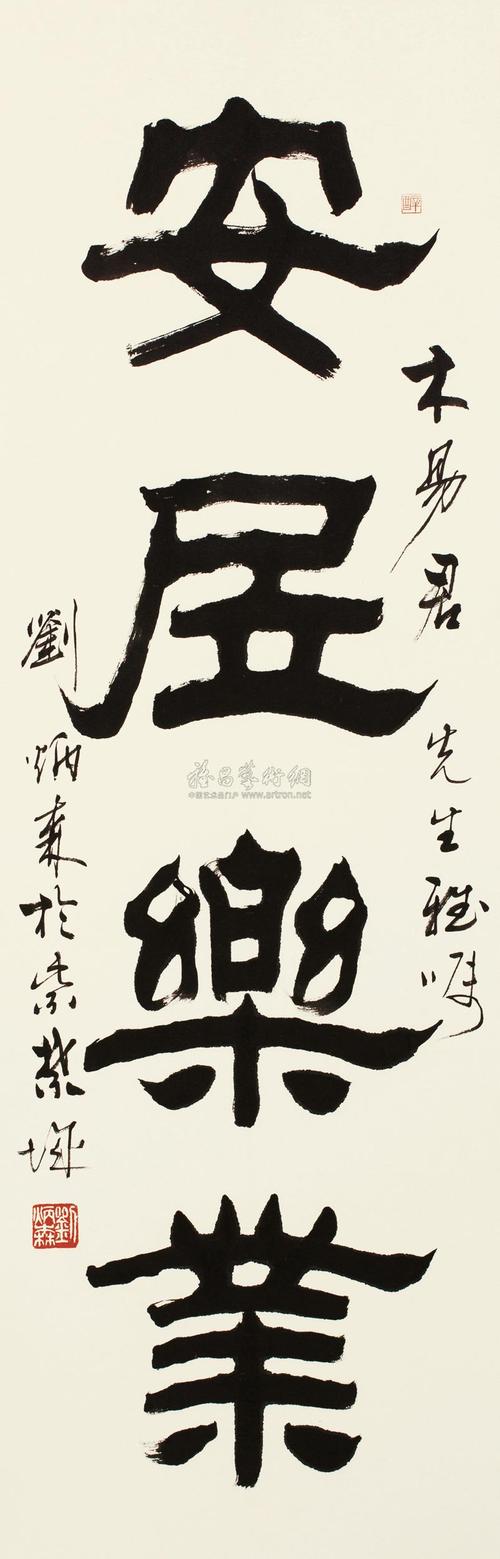 安居樂業
木易君 先生雅嘱
劉炳森於紫禁城
劉炳森
雅昌藝術網
中国艺术品门户 www.artron.net